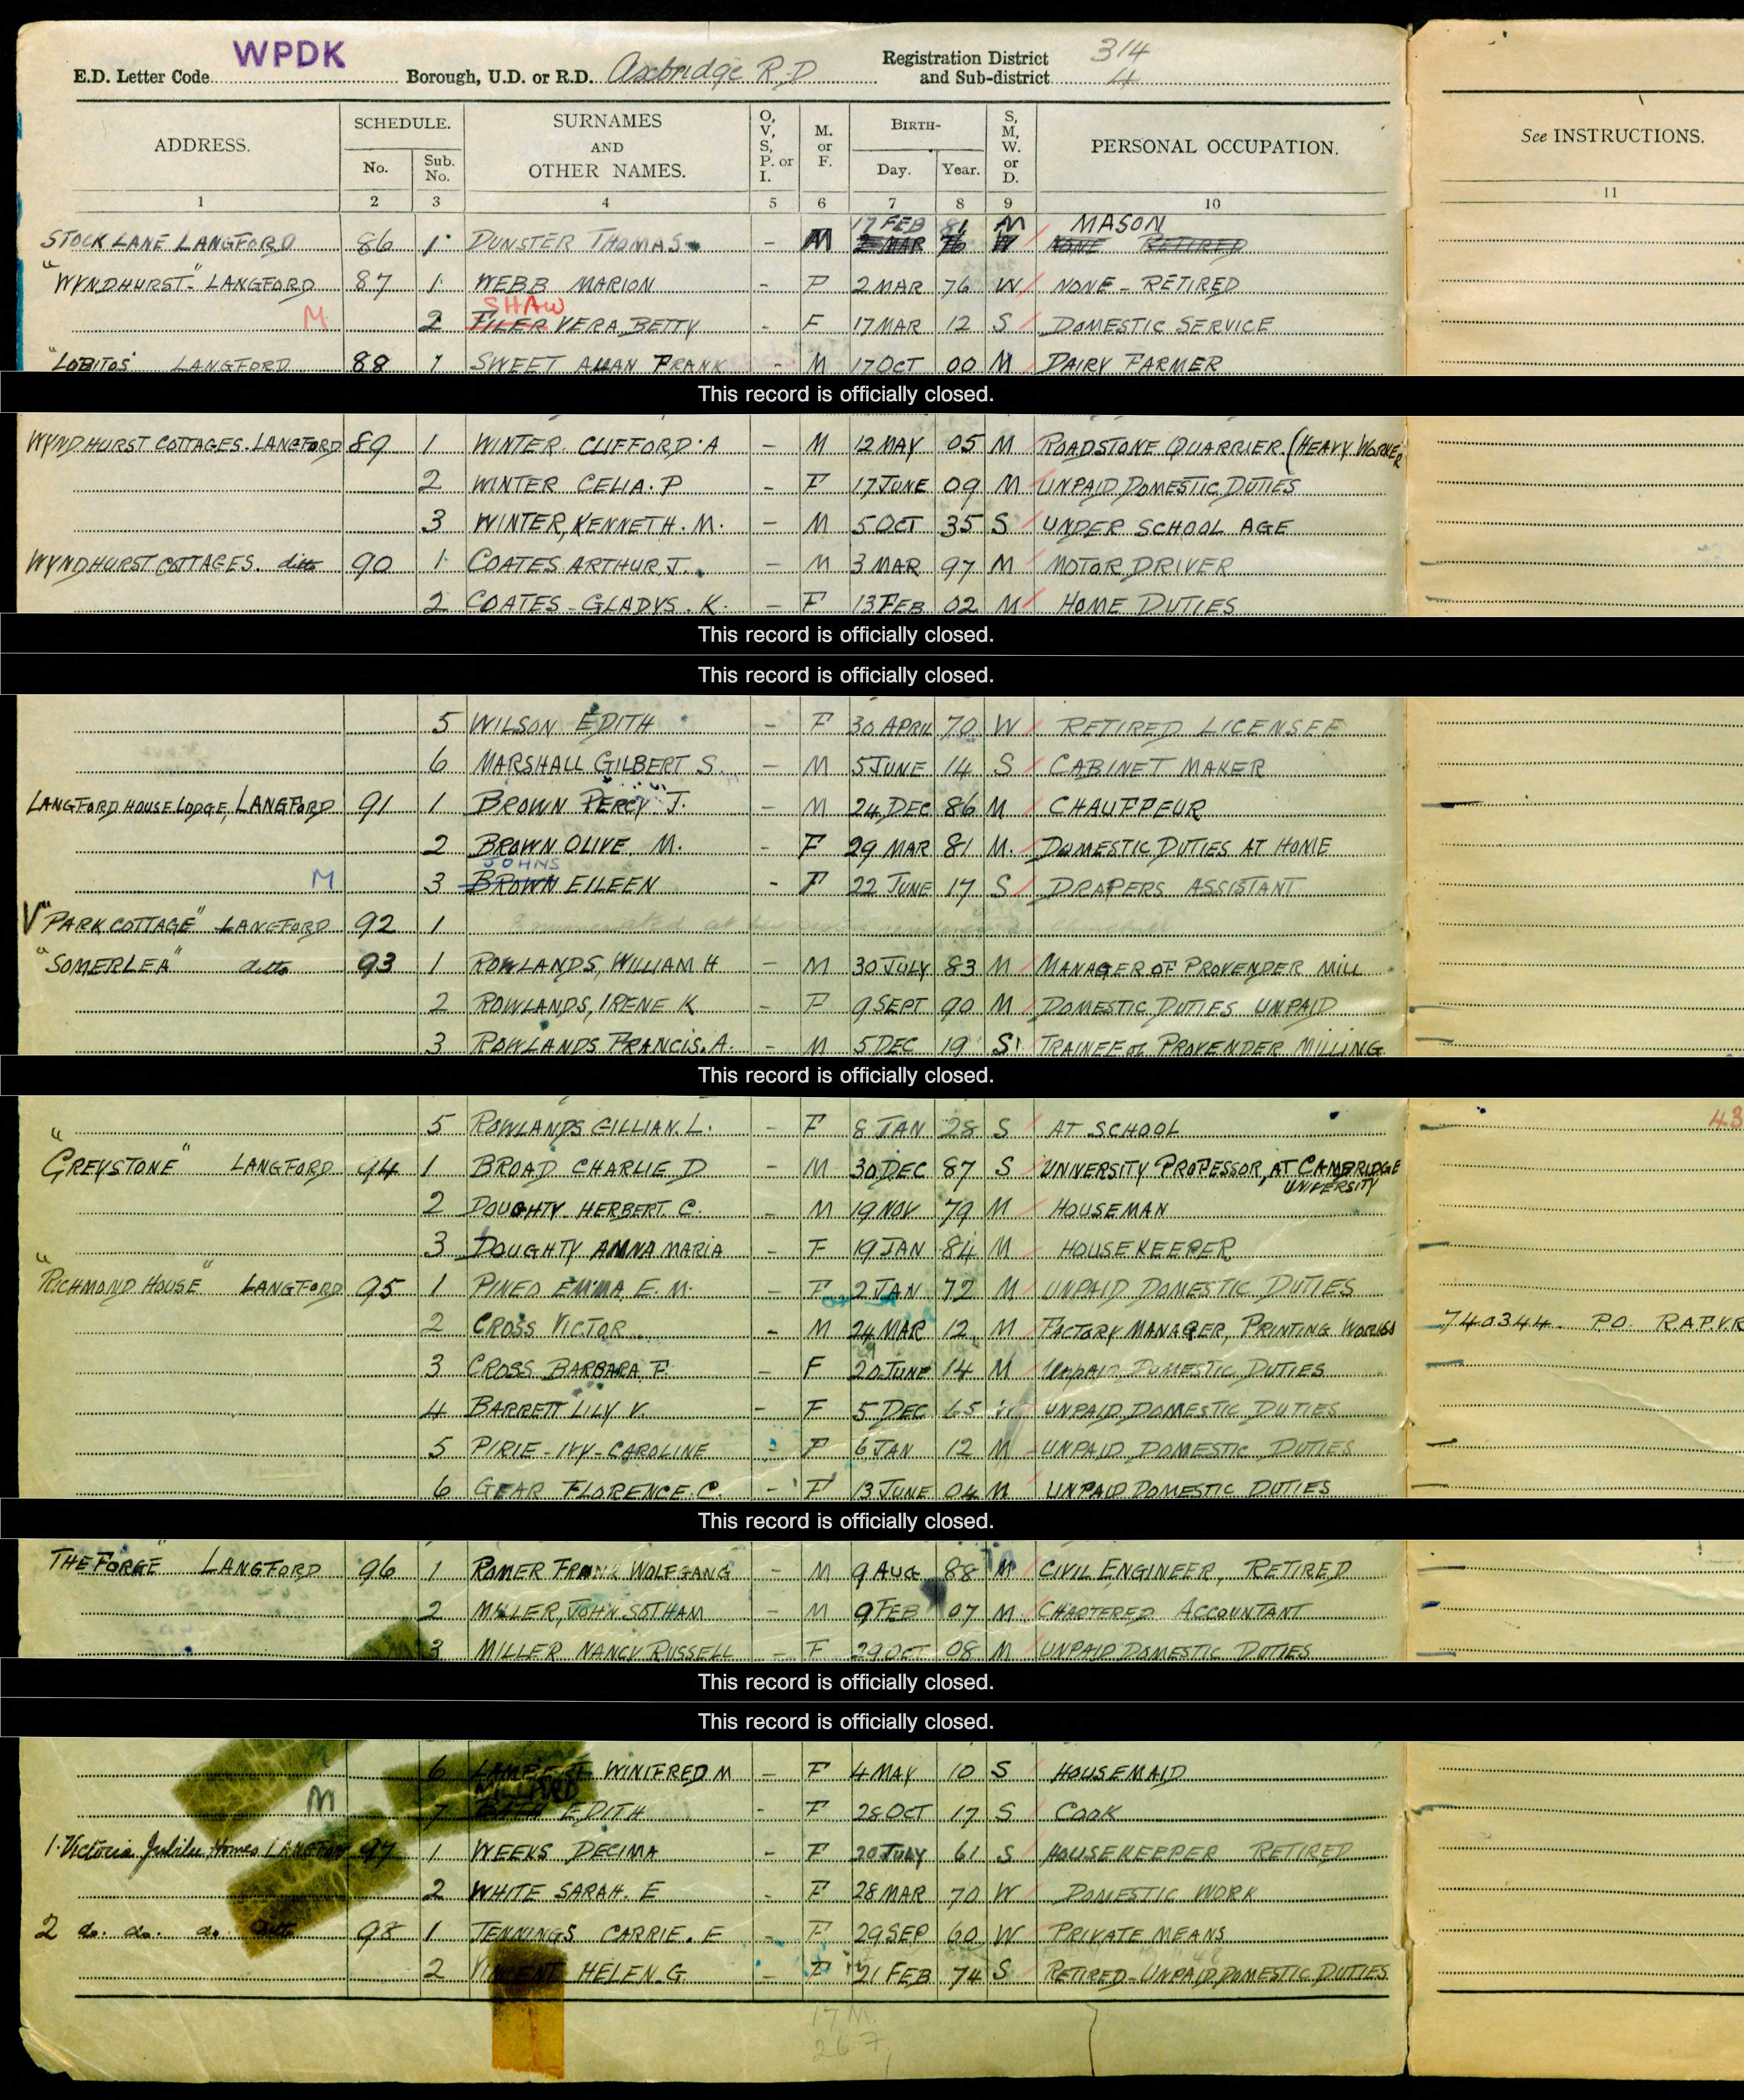 WPDK
E.D. Letter Code Borough, U.D. or R.D. Axbridge R.D Registration District and Sub-district 314 4
ADDRESS. SCHEDULE. No. Sub. No. SURNAMES AND OTHER NAMES. O, V, S, P. or I. M. or F. BIRTH- Day. Year. S, M, W. or D. PERSONAL OCCUPATION. See INSTRUCTIONS.
1 2 3 4 5 6 7 8 9 10 11
17 FEB 81 M MASON
STOCK LANE LANGFORD 86 1 DUNSTER THOMAS - M 2 MAR 76 W NONE RETIRED
"WYNDHURST" LANGFORD 87 1 WEBB MARION - F 2 MAR 76 W NONE - RETIRED
SHAW
M 2 FILER VERA BETTY - F 17 MAR 12 S DOMESTIC SERVICE
"LOBITOS" LANGFORD 88 1 SWEET ALLAN FRANK - M 17 OCT 00 M DAIRY FARMER
This record is officially closed.
WYNDHURST COTTAGES. LANGFORD 89 1 WINTER CLIFFORD. A - M 12 MAY 05 M ROADSTONE QUARRIER. (HEAVY WORKER
2 WINTER CELIA. P - F 17 JUNE 09 M UNPAID DOMESTIC DUTIES
3 WINTER, KENNETH. M. - M 5 OCT 35 S UNDER SCHOOL AGE
WYNDHURST COTTAGES. ditto 90 1 COATES ARTHUR J. - M 3 MAR 97 M MOTOR DRIVER
2 COATES - GLADYS. K. - F 13 FEB 02 M HOME DUTIES
This record is officially closed.
This record is officially closed.
5 WILSON EDITH - F 30 APRIL 70 W RETIRED LICENSEE
6 MARSHALL GILBERT S. - M 5 JUNE 14 S CABINET MAKER
LANGFORD HOUSE LODGE, LANGFORD 91 1 BROWN PERCY J. - M 24 DEC 86 M CHAUFFEUR
2 BROWN OLIVE M. - F 29 MAR 81 M. DOMESTIC DUTIES AT HOME
JOHNS
M 3 BROWN EILEEN - F 22 JUNE 17 S DRAPERS ASSISTANT
V "PARK COTTAGE" LANGFORD 92 1 Enumerated at
"SOMERLEA" ditto 93 1 ROWLANDS, WILLIAM H - M 30 JULY 83 M MANAGER OF PROVENDER MILL
2 ROWLANDS, IRENE K - F 9 SEPT 90 M DOMESTIC DUTIES UNPAID
3 ROWLANDS FRANCIS. A. - M 5 DEC 19 S TRAINEE OF PROVENDER MILLING
This record is officially closed.
5 ROWLANDS GILLIAN. L. - F 8 JAN 28 S AT SCHOOL 43
"GREYSTONE" LANGFORD 94 1 BROAD CHARLIE D - M 30 DEC 87 S UNIVERSITY PROFESSOR, AT CAMBRIDGE UNIVERSITY
2 DOUGHTY HERBERT. C. - M 19 NOV 79 M HOUSEMAN
3 DOUGHTY ANNA MARIA - F 19 JAN 84 M HOUSEKEEPER
"RICHMOND HOUSE" LANGFORD 95 1 PINED EMMA. E. M. - F 2 JAN 72 M UNPAID DOMESTIC DUTIES
2 CROSS VICTOR - M 24 MAR 12 M FACTORY MANAGER, PRINTING WORKS 740344 PO R.A.F.V.R
3 CROSS BARBARA. F. - F 20 JUNE 14 M Unpaid DOMESTIC DUTIES
4 BARRETT LILY V. - F 5 DEC 65 UNPAID DOMESTIC DUTIES
5 PIRIE - IVY - CAROLINE - F 6 JAN 12 M UNPAID DOMESTIC DUTIES
6 GEAR FLORENCE. C. - F 13 JUNE 04 M UNPAID DOMESTIC DUTIES
This record is officially closed.
THE FORGE" LANGFORD 96 1 ROMER FRANK WOLFGANG - M 9 AUG 88 M CIVIL ENGINEER, RETIRED
2 MILLER, JOHN SOTHAM - M 9 FEB 07 M CHARTERED ACCOUNTANT
3 MILLER NANCY RUSSELL - F 29 OCT 08 M UNPAID DOMESTIC DUTIES
This record is officially closed.
This record is officially closed.
6 LAMBERT WINIFRED M - F 4 MAY 10 S HOUSEMAID
MILLARD
M 7 BATH EDITH - F 28 OCT 17 S COOK
1. Victoria Jubilee Homes LANGFORD 97 1 WEEKS DECIMA - F 20 JULY 61 S HOUSEKEEPER RETIRED
2 WHITE SARAH. E - F 28 MAR 70 W DOMESTIC WORK
2 do. do. do. ditto 98 1 JENNINGS CARRIE. E - F 29 SEP 60 W PRIVATE MEANS
2 VINCENT HELEN. G - F 21 FEB 74 S RETIRED - UNPAID DOMESTIC DUTIES
17 M.
26 7